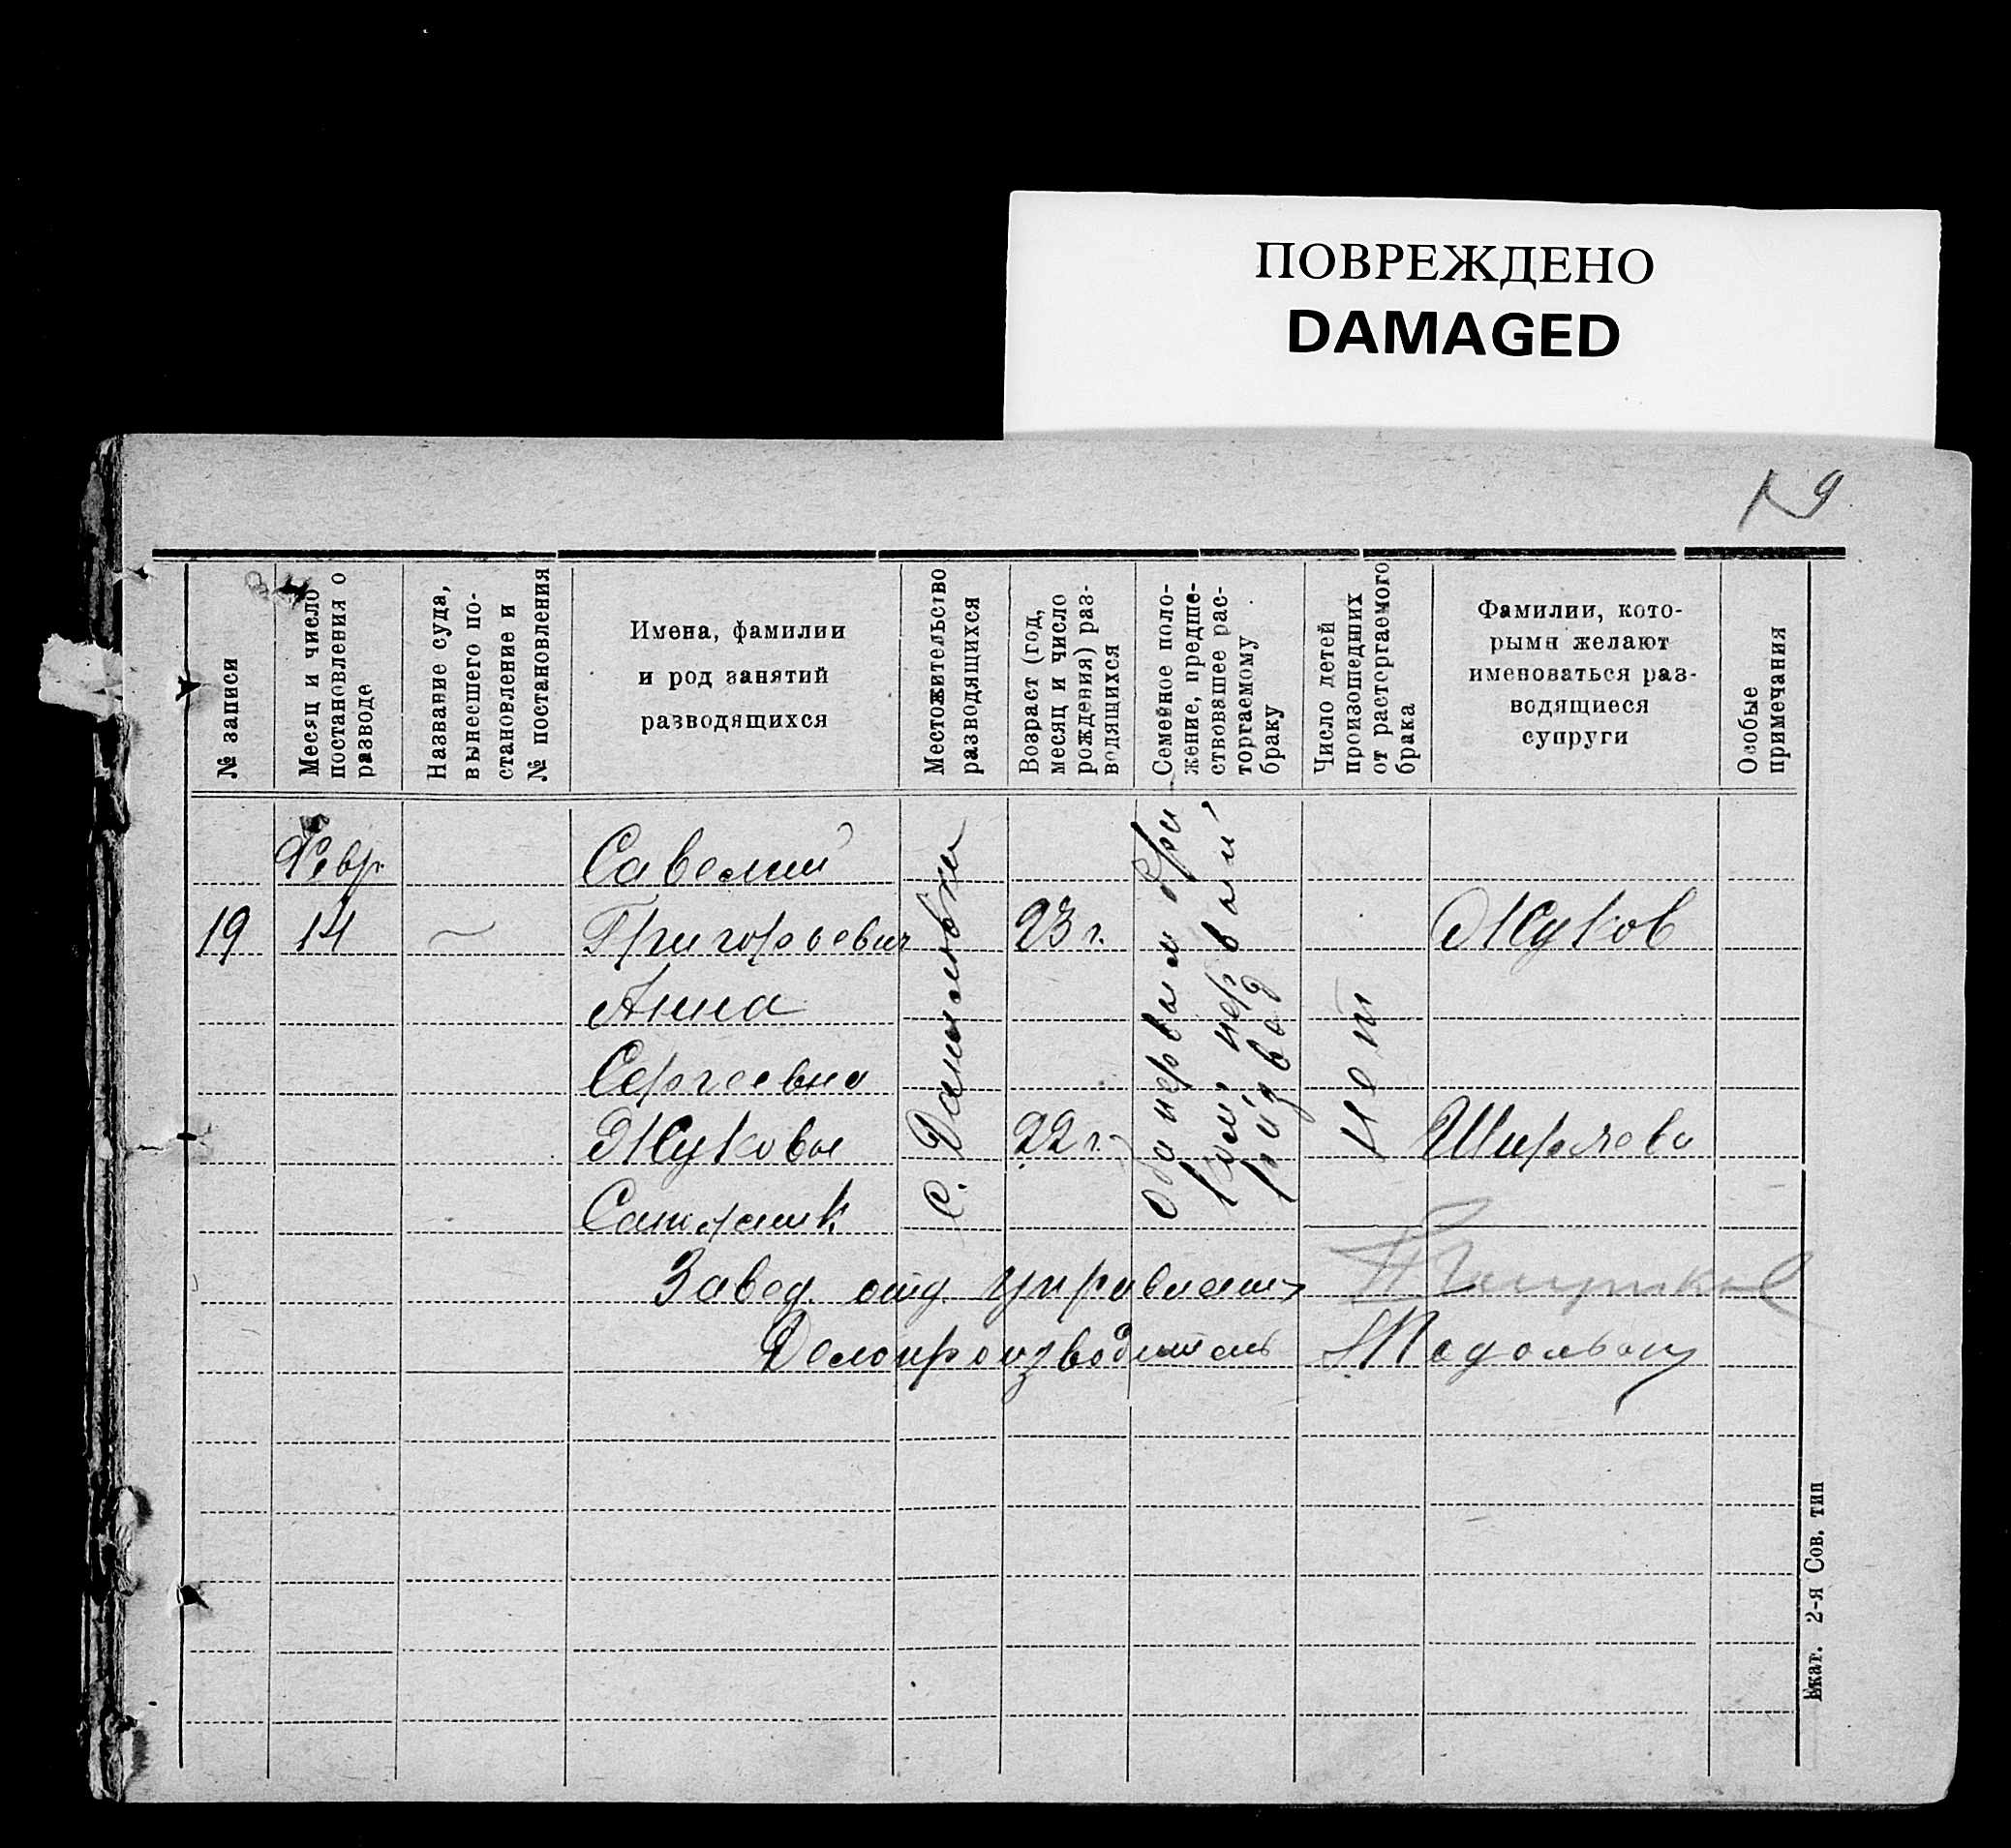 ПОВРЕЖДЕНО
DAMAGED
19
№ записи
Месяц и число
постановления о
разводе
Название суда,
вынесшего по-
становление и
№ постановления
Имена, фамилии
и род занятий
разводящихся
Местожительство
разводящихся
Возраст (год,
месяц и число
рождения) раз-
водящихся
Семейное поло-
жение, предше-
ствовавшее рас-
торгаемому
браку
Число детей
происшедших
от расторгаемого
брака
Фамилии, кото-
рыми желают
именоваться раз-
водящиеся
супруги
Особые
примечания
Февр.
19 14 —
Савелий
Григорьевич
Анна
Сергеевна
Жуковы
с.
23 г.
22 г.
Оба первым бра
ком, первый
развод
нет
Жуков
Ширяева
Завед. отд. управлен
Делопроизводитель
Екат. 2-я Сов. тип